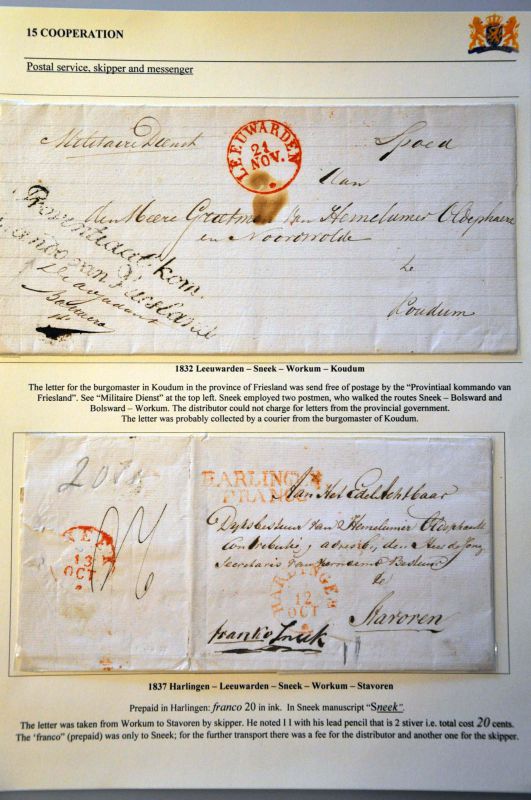 15 COOPERATION
Postal service, skipper and messenger
Militaire Dienst
LEEUWARDEN
21
NOV.
Spoed
Aan
den Heere Grietman van Hemelumer Oldephaert
en Noordwolde
te
Koudum
Provintiaal kom.
mando van Friesland
1832 Leeuwarden – Sneek – Workum – Koudum
The letter for the burgomaster in Koudum in the province of Friesland was send free of postage by the “Provintiaal kommando van
Friesland”. See “Militaire Dienst” at the top left. Sneek employed two postmen, who walked the routes Sneek – Bolsward and
Bolsward – Workum. The distributor could not charge for letters from the provincial government.
The letter was probably collected by a courier from the burgomaster of Koudum.
HARLINGEN
FRANCO
Aan Het Edel Achtbaar
van Hemelumer Oldephaert
den Heer de Jong
Secretaris van
te
Stavoren
SNEEK
13
OCT
HARLINGEN
12
OCT
franko Sneek
1837 Harlingen – Leeuwarden – Sneek – Workum – Stavoren
Prepaid in Harlingen: franco 20 in ink. In Sneek manuscript “Sneek”.
The letter was taken from Workum to Stavoren by skipper. He noted I I with his lead pencil that is 2 stiver i.e. total cost 20 cents.
The ‘franco” (prepaid) was only to Sneek; for the further transport there was a fee for the distributor and another one for the skipper.